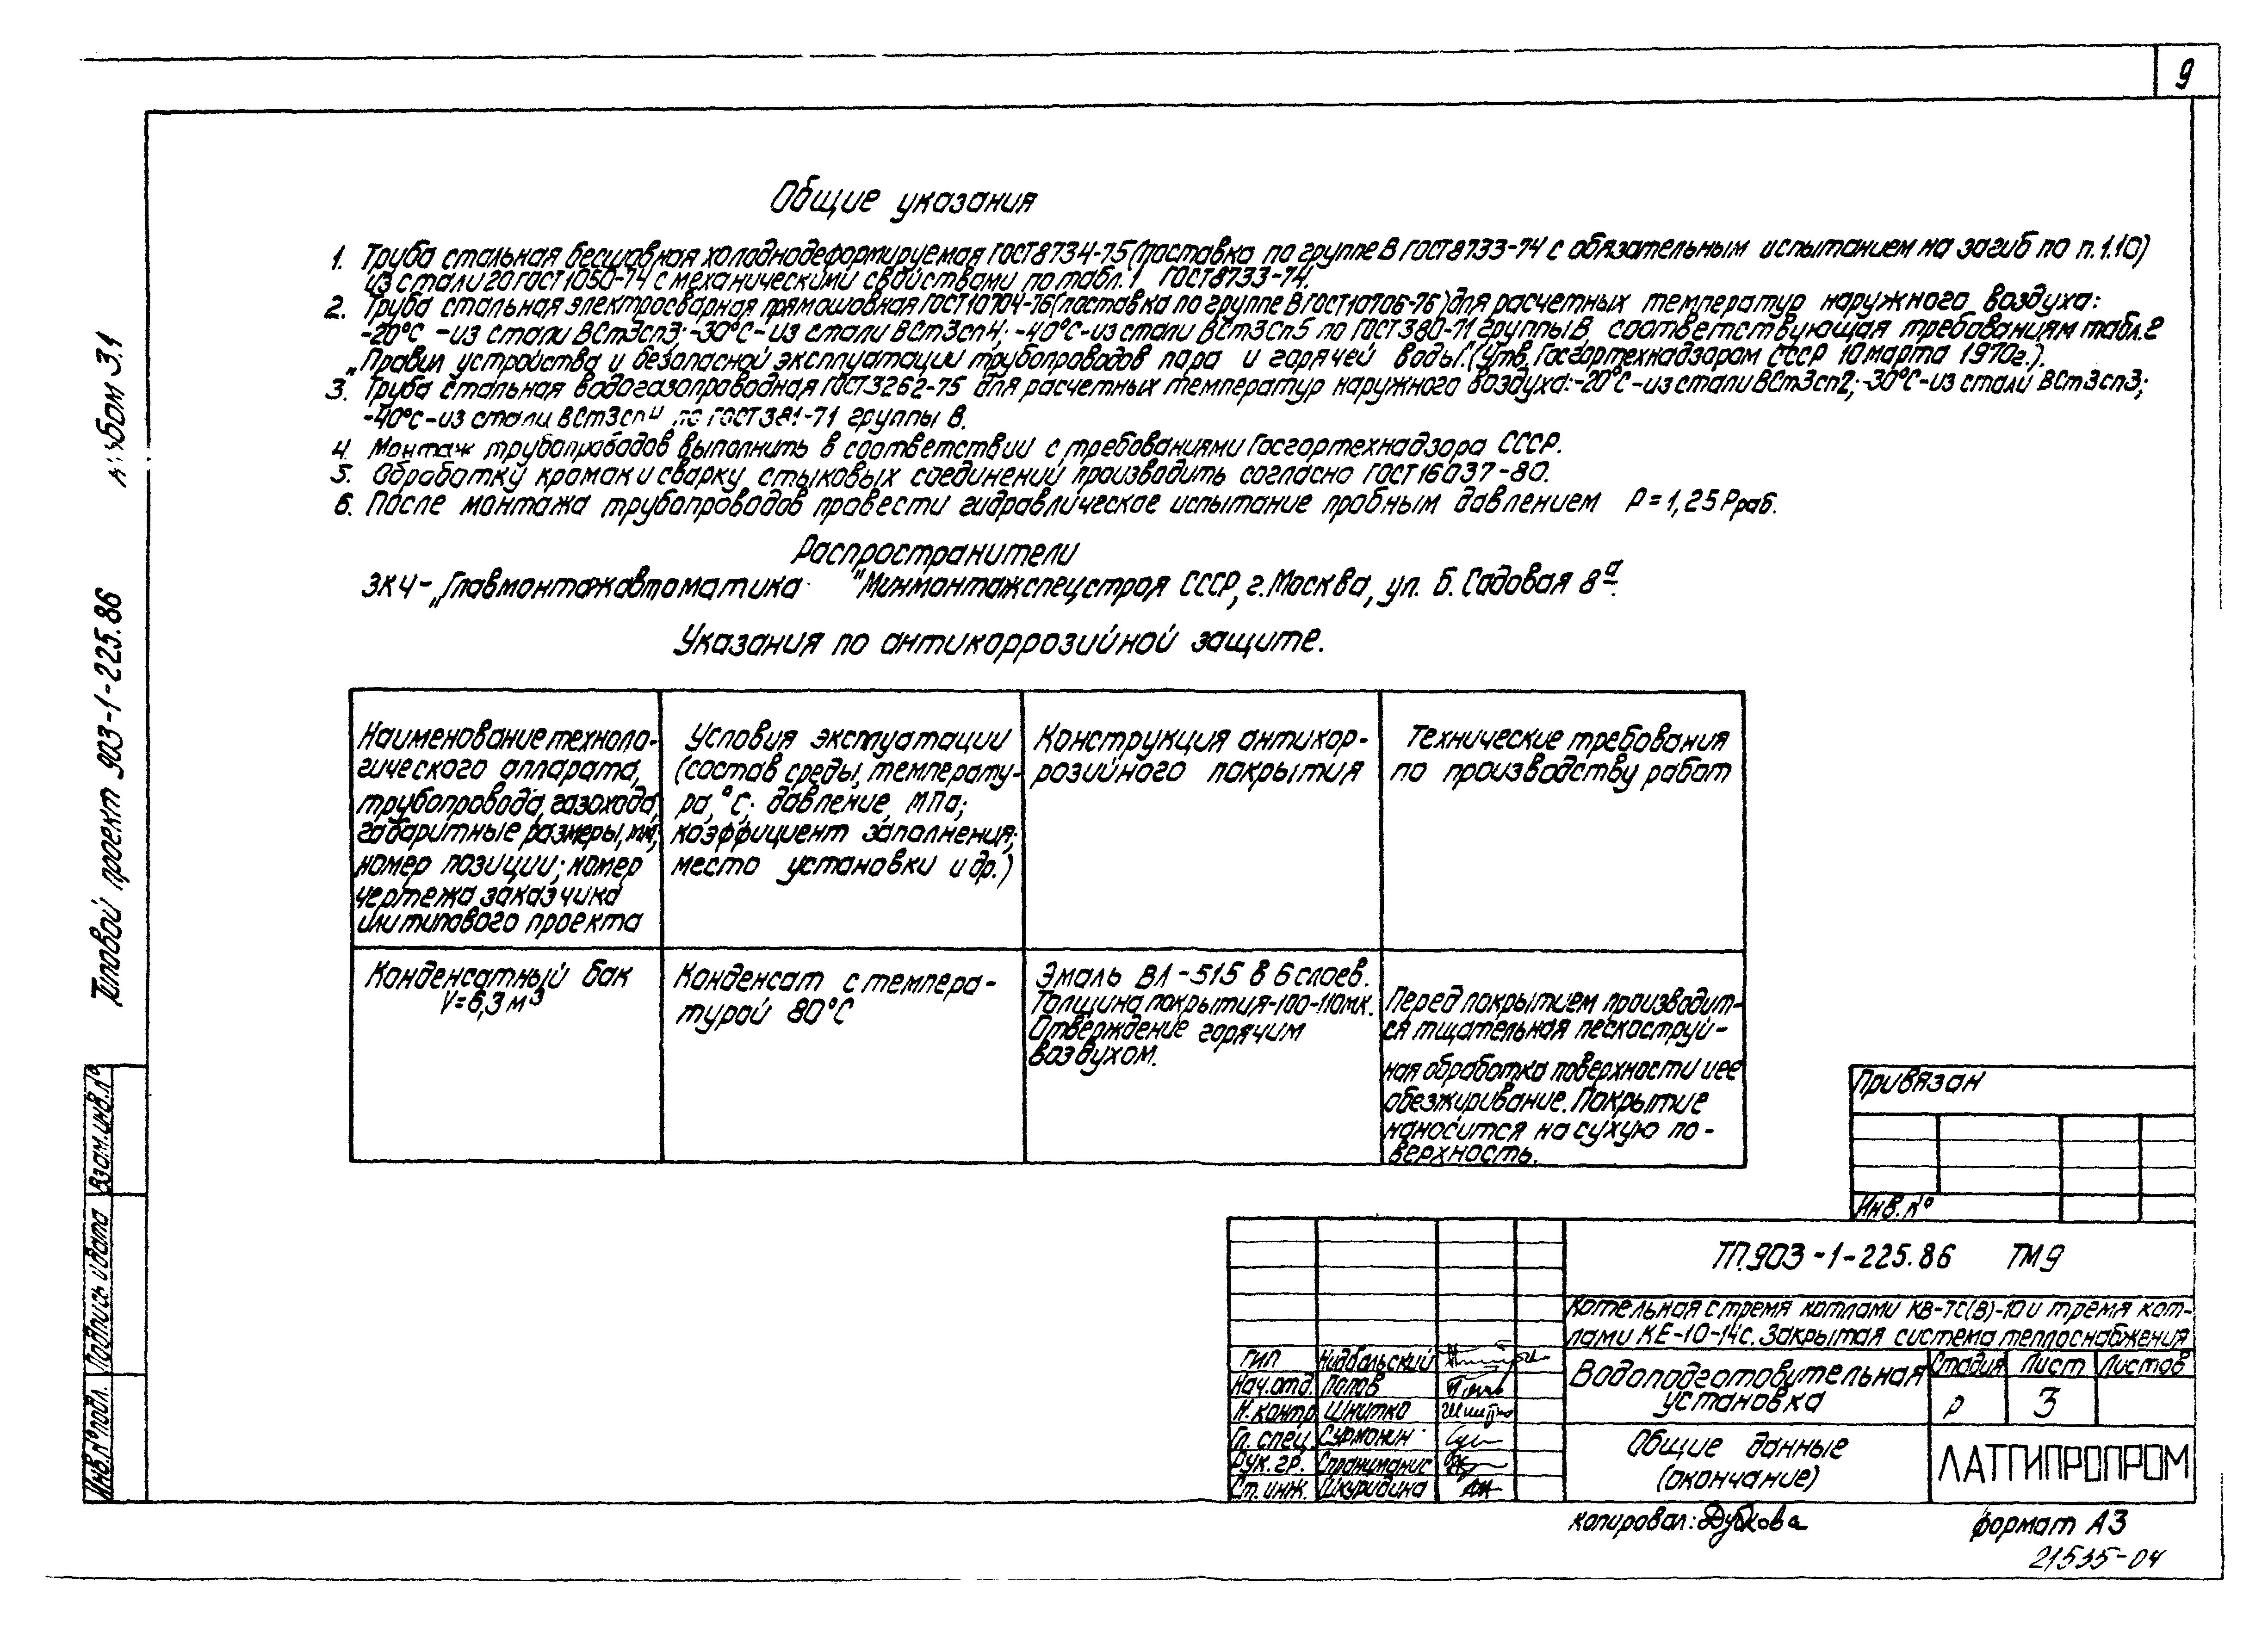 9
Общие указания
1. Труба стальная бесшовная холоднодеформируемая ГОСТ8734-75(поставка по группе В ГОСТ8733-74 с обязательным испытанием на загиб по п.1.10)
из стали 20 ГОСТ1050-74 с механическими свойствами по табл.1 ГОСТ8733-74.
2. Труба стальная электросварная прямошовная ГОСТ10704-76(поставка по группе В ГОСТ10706-76) для расчетных температур наружного воздуха:
-20°С -из стали ВСт3сп3; -30°С-из стали ВСт3сп4; -40°С-из стали ВСт3сп5 по ГОСТ380-71 группы В, соответствующая требованиям табл.2
„Правил устройства и безопасной эксплуатации трубопроводов пара и горячей воды". (Утв. Госгортехнадзором СССР 10 марта 1970г.).
3. Труба стальная водогазопроводная ГОСТ3262-75 для расчетных температур наружного воздуха:-20°С-из стали ВСт3сп2; -30°С-из стали ВСт3сп3;
-40°С-из стали ВСт3сп4 по ГОСТ381-71 группы В.
4. Монтаж трубопроводов выполнить в соответствии с требованиями Госгортехнадзора СССР.
5. Обработку кромок и сварку стыковых соединений производить согласно ГОСТ16037-80.
6. После монтажа трубопроводов провести гидравлическое испытание пробным давлением Р=1,25 Рраб.
Распространители
ЗКЧ-„Главмонтажавтоматика "Минмонтажспецстроя СССР, г.Москва, ул. Б.Садовая 8а.
Указания по антикоррозийной защите.
Наименование техноло-
гического аппарата,
трубопровода, газохода,
габаритные размеры, мм,
номер позиции; номер
чертежа заказчика
или типового проекта
Условия эксплуатации
(состав среды, температу-
ра, °С; давление, МПа;
коэффициент заполнения;
место установки и др.)
Конструкция антикор-
розийного покрытия
Технические требования
по производству работ
Конденсатный бак
V=6,3м³
Конденсат с темпера-
турой 80°С
Эмаль ВЛ-515 в 6 слоев.
Толщина покрытия-100-110мк.
Отверждение горячим
воздухом.
Перед покрытием производит-
ся тщательная пескоструй-
ная обработка поверхности и ее
обезжиривание. Покрытие
наносится на сухую по-
верхность.
Альбом 3.1
Типовой проект 903-1-225.86
Взам.инв.№
Подпись и дата
Инв.№ подл.
Привязан
Инв.№
ТП.903-1-225.86 ТМ9
Котельная с тремя котлами КВ-ТС(В)-10 и тремя кот-
лами КЕ-10-14с. Закрытая система теплоснабжения
ГИП Нидбальский
Нач.отд. Попов
Н.контр. Шнитко
Гл. спец. Сурмонин
Рук.гр. Спранцманис
Ст.инж. Шкуридина
Водоподготовительная
установка
Стадия Лист Листов
Р 3
Общие данные
(окончание)
ЛАТГИПРОПРОМ
копировал: Дубкова
формат А3
21535-04